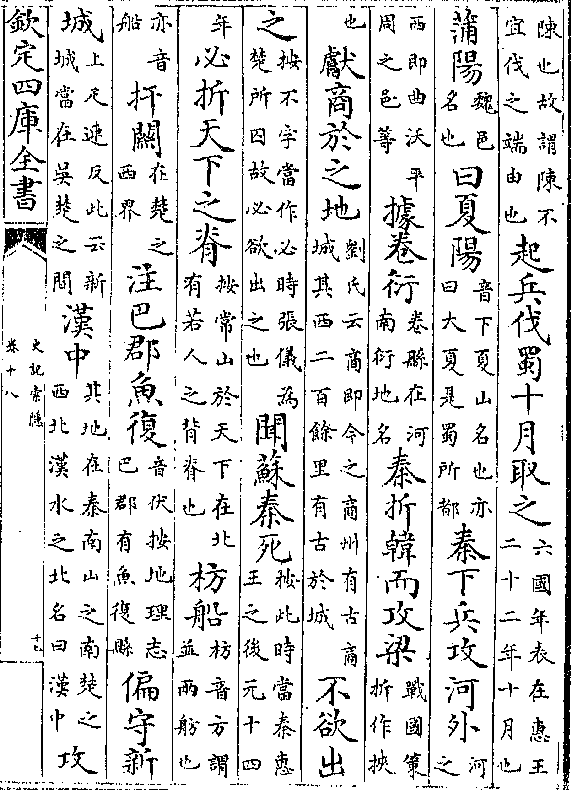 陳也故謂陳不宜伐之端由也起兵伐蜀十月取之六國年表在惠王二十二年十月也
蒲陽魏邑名也曰夏陽音下夏山名也亦曰大夏是蜀所都秦下兵攻河外河之
西即曲沃平周之邑等據卷衍卷縣在河南衍地名秦折韓而攻梁戰國策折作挾
也獻商於之地劉氏云商即今之商州有古商城其西二百餘里有古於城不欲出
之按不字當作必時張儀為楚所囚故必欲出之也聞蘇秦死按此時當秦惠王之後元十四
年必折天下之脊按常山於天下在北有若人之背脊也枋船枋音方謂並兩舫也
亦音船扞關在楚之西界注巴郡魚復音伏按地理志巴郡有魚復縣偏守新
城上尺連反此云新城當在吳楚之間漢中其地在秦南山之南楚之西北漢水之北名曰漢中攻
欽定四庫全書
史記索隱
卷十八
十七